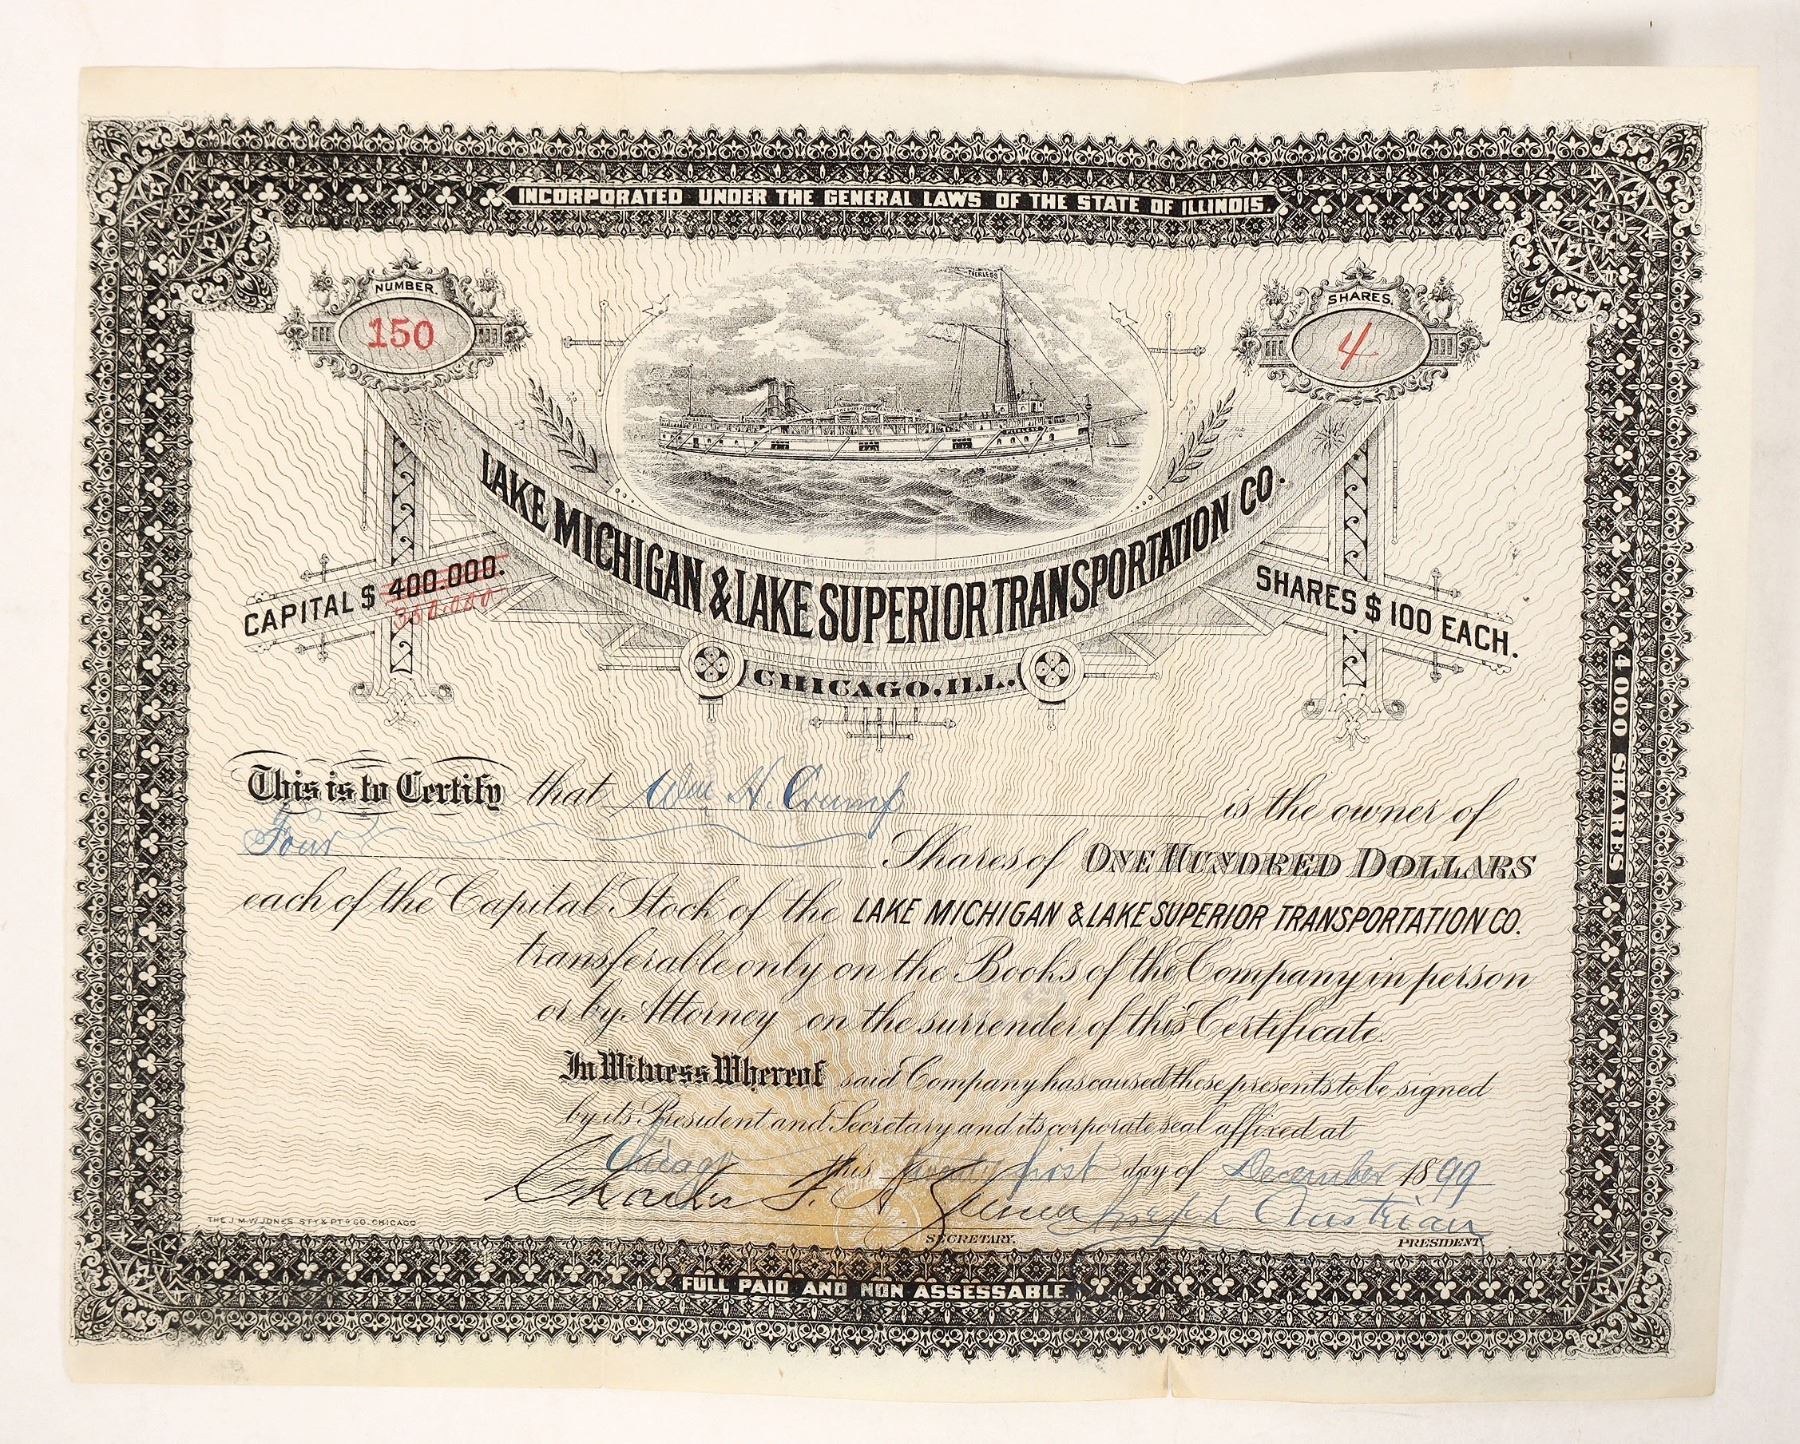 INCORPORATED UNDER THE GENERAL LAWS OF THE STATE OF ILLINOIS.
NUMBER
150
SHARES.
4
PEERLESS
LAKE MICHIGAN & LAKE SUPERIOR TRANSPORTATION CO.
CHICAGO. ILL.
CAPITAL $ 400.000.
350.000
SHARES $ 100 EACH.
4000 SHARES
This is to Certify that Wm H. Crump is the owner of
Four Shares of ONE HUNDRED DOLLARS
each of the Capital Stock of the LAKE MICHIGAN & LAKE SUPERIOR TRANSPORTATION CO.
transferable only on the Books of the Company in person
or by Attorney on the surrender of this Certificate.
In Witness Whereof said Company has caused these presents to be signed
by its President and Secretary and its corporate seal affixed at
Chicago this twenty first day of December 1899
Charles F. A. Joseph Austrian
SECRETARY. PRESIDENT
THE J.M.W. JONES STY & PTG CO. CHICAGO
FULL PAID AND NON ASSESSABLE.